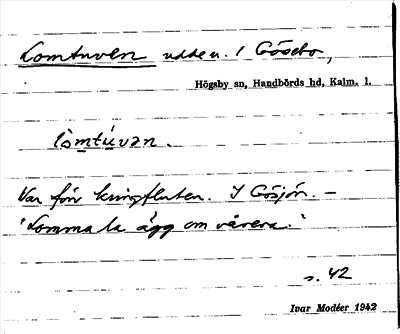 Lomtuven udde u. / Gösebo,
Högsby sn, Handbörds hd, Kalm. l.
lòmtúvən.
Var förr kringfluten. I Gösjön. —
"Lomma la ägg om vårera."
s. 42
Ivar Modéer 1942